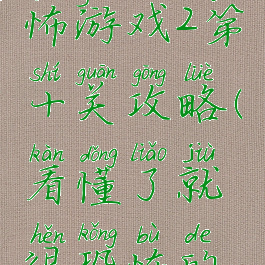 怖游戏2第
shí guān gōng lüè
十关攻略(
kàn dǒng liǎo jiù
看懂了就
hěn kǒng bù de
很恐怖的